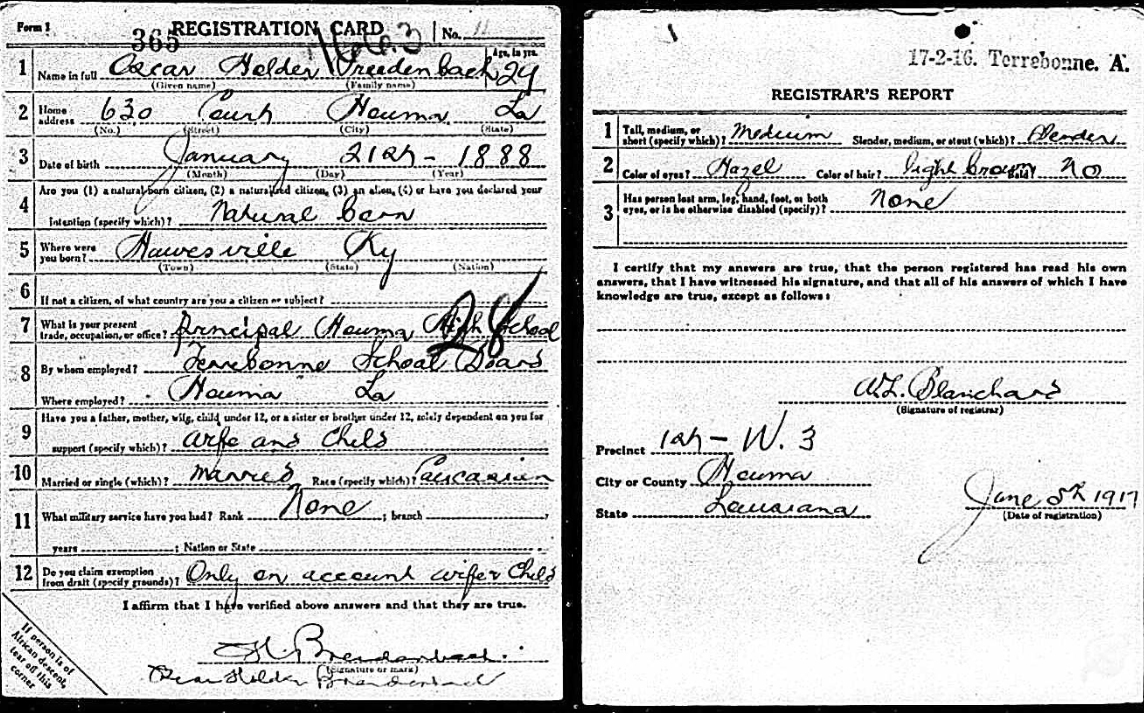 Form 1
REGISTRATION CARD
No. 11
365
1 Name in full Oscar Holder Breedenbach
(Given name) (Family name)
Age, in yrs. 29
2 Home address 630 Church Houma La
(No.) (Street) (City) (State)
3 Date of birth January 21st - 1888
(Month) (Day) (Year)
4 Are you (1) a natural-born citizen, (2) a naturalized citizen, (3) an alien, (4) or have you declared your
intention (specify which)? Natural born
5 Where were you born? Hawesville Ky
(Town) (State) (Nation)
6 If not a citizen, of what country are you a citizen or subject?
7 What is your present trade, occupation, or office? Principal Houma High School
28
8 By whom employed? Terrebonne School Board
Where employed? Houma La
9 Have you a father, mother, wife, child under 12, or a sister or brother under 12, solely dependent on you for
support (specify which)? Wife and Child
10 Married or single (which)? Married Race (specify which)? Caucasian
11 What military service have you had? Rank None ; branch
years ; Nation or State
12 Do you claim exemption from draft (specify grounds)? Only on account wife & Child
I affirm that I have verified above answers and that they are true.
(Signature or mark)
Oscar Holder Breidenbach
If person is of
African descent,
tear off this
corner
17-2-16. Terrebonne. A.
REGISTRAR'S REPORT
1 Tall, medium, or short (specify which)? Medium Slender, medium, or stout (which)? Slender
2 Color of eyes? Hazel Color of hair? light brown Bald? No
3 Has person lost arm, leg, hand, foot, or both eyes, or is he otherwise disabled (specify)? None
I certify that my answers are true, that the person registered has read his own
answers, that I have witnessed his signature, and that all of his answers of which I have
knowledge are true, except as follows:
A.L. Blanchard
(Signature of registrar)
Precinct 1st - W. 3
City or County Houma
State Louisiana
June 5th 1917
(Date of registration)